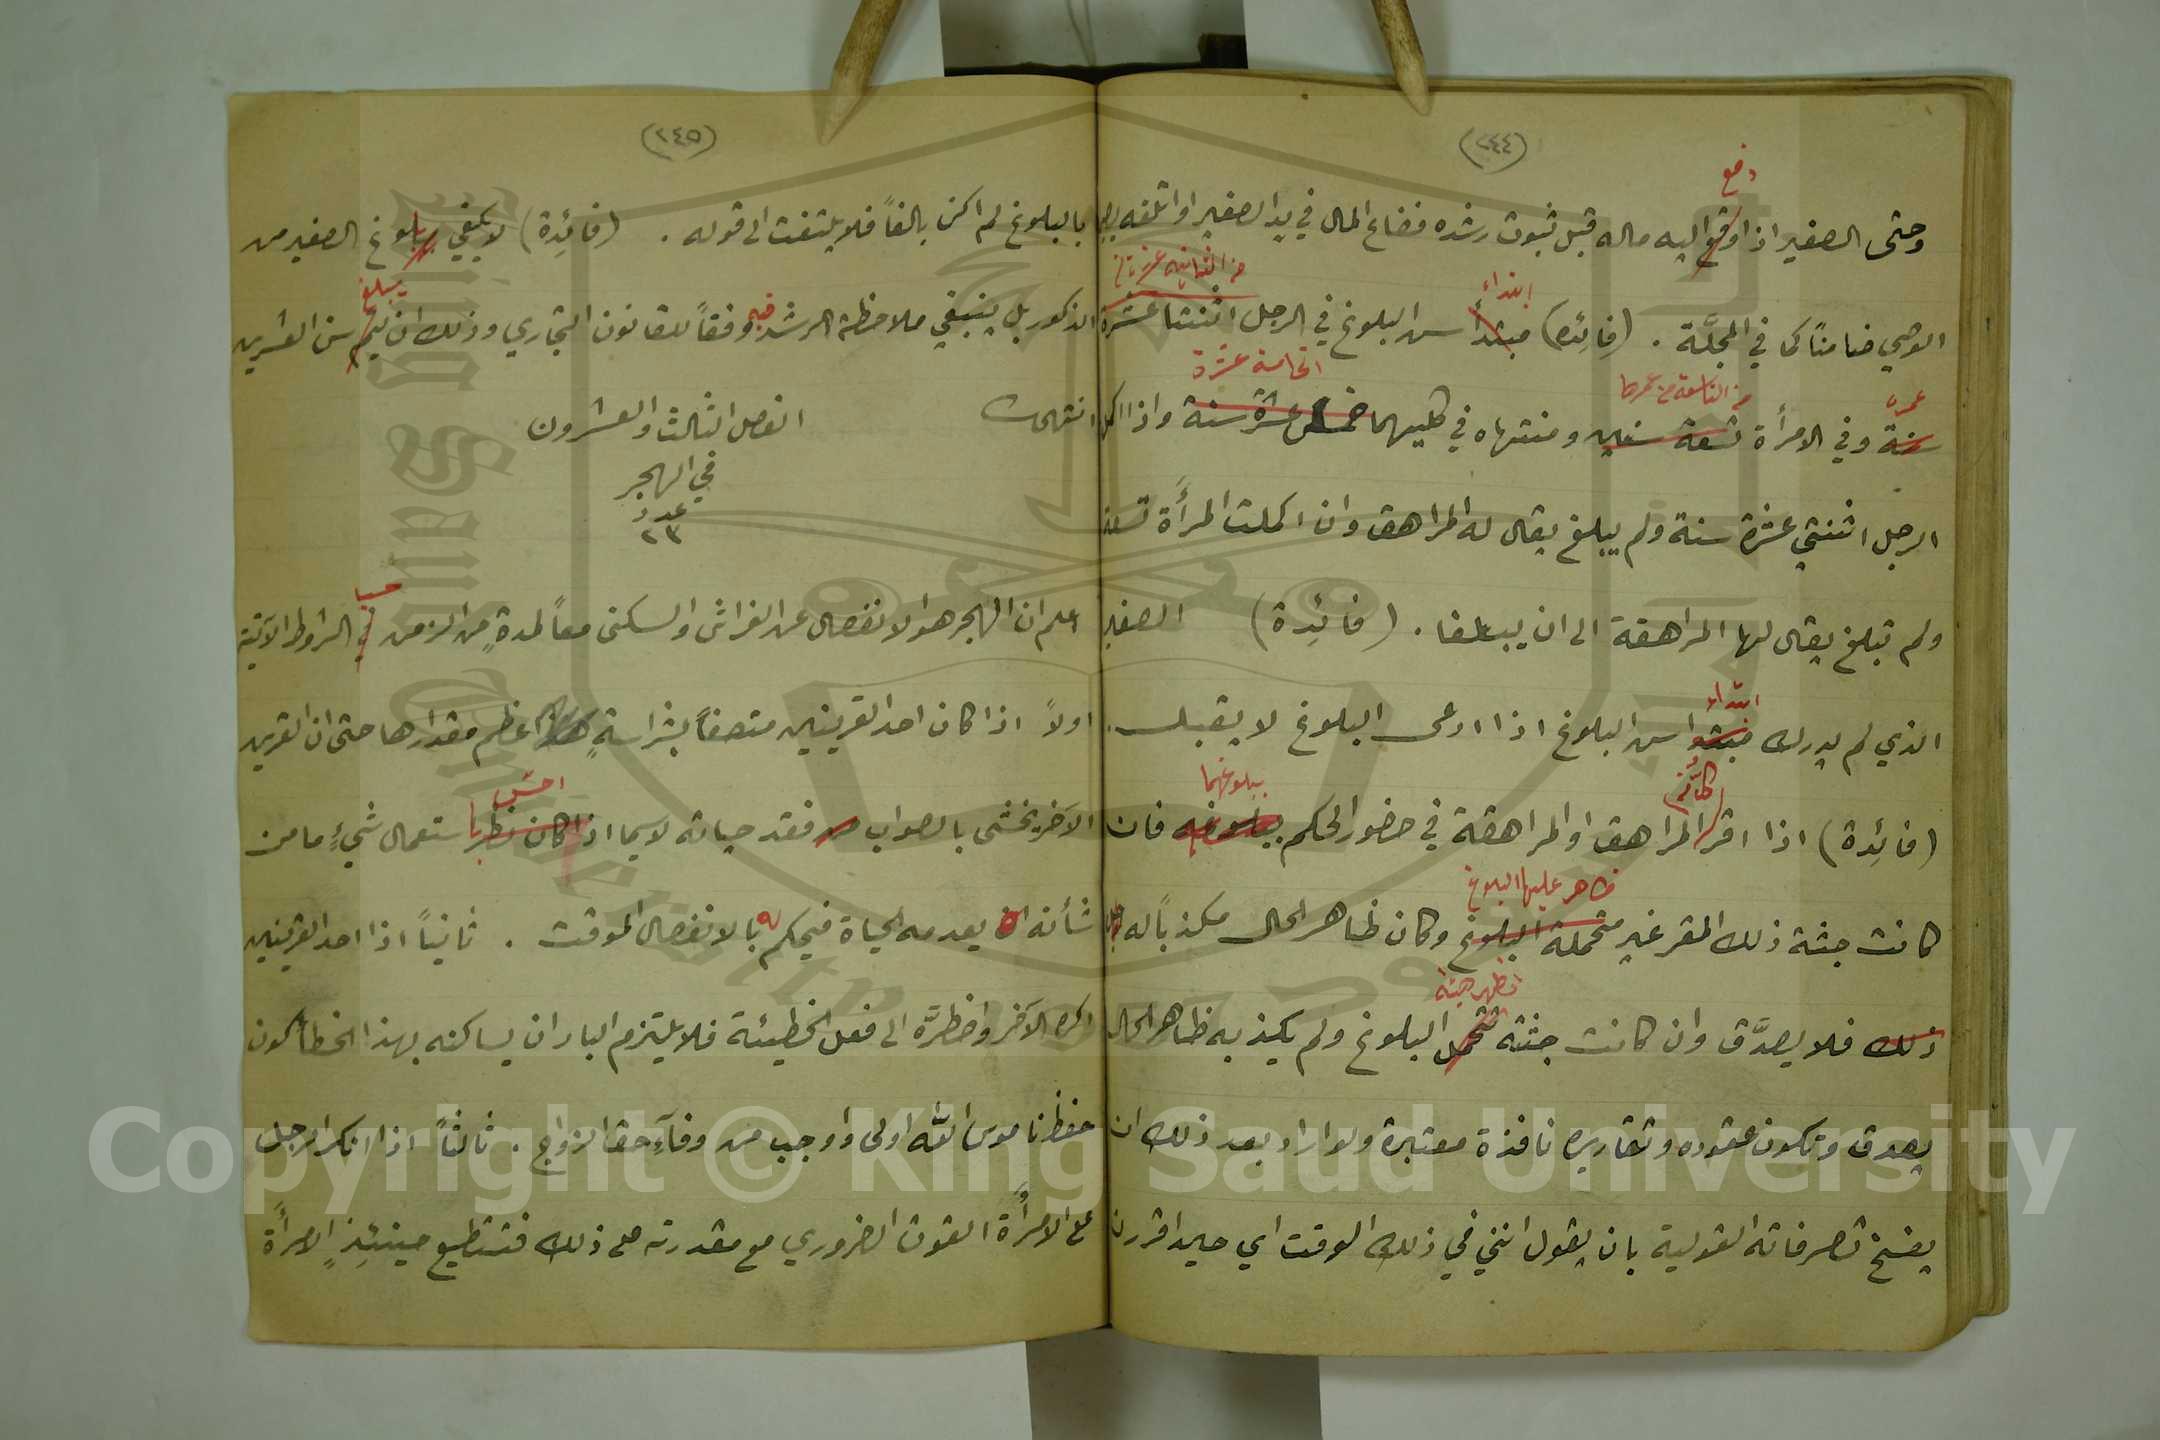 (٢٤٤)
دفع
وحتى الصغير اذا وقع اليه ماله قبل ثبوت رشده فضاع المال في يد الصغير او اتلفه
ابتداء من الثانية عشرة
الوصي ضامنًا كما في المجلَّة . (فائِده) مبتدأ سن البلوغ في الرجل اثنتا عشرة
عمره من التاسعة من عمرها الخامسة عشرة
سنة وفي الامرأة تسعة سنين ومنتهاه في كليهما خمس عشرة سنة واذا اكمل
الرجل اثنتي عشرة سنة ولم يبلغ يقال له المراهق وان اكملت المرأَة تسعة
ولم تبلغ يقال لها المراهقة الى ان يبلغا . (فائِدة) الصغير
ابتداء
الذي لم يدرك مبتدا سن البلوغ اذا ادعى البلوغ لا يقبل .
ببلوغهما
(فائِدة) اذا اقر المراهق او المراهقة في حضور الحكم ببلوغه فان
ظاهر عليها البلوغ
كانت جثة ذلك المقر غير متحملة البلوغ وكان ظاهر الحال مكذباً له
تظهر هيئة
ذلك فلا يصدَّق وان كانت جثته تتحمل البلوغ ولم يكذبه ظاهر الحال
يصدق وتكون عقوده وتقاريره نافذة معتبرة ولو اراد بعد ذلك ان
يفسخ تصرفاته القولية بان يقول انني في ذلك الوقت اي حين اقررت
(٢٤٥)
بالبلوغ لم اكن بالغاً فلا يلتفت الى قوله . (فائِدة) لا يكفي بلوغ الصغير من
فيه يبلغ
الذكور بل ينبغي ملاحظة الرشد وفقاً للقانون التجاري وذلك ان يتم سن العشرين
انتهى
الفصل الثالث والعشرون
في الهجر
عدد
٢٣
حسب
اعلم ان الهجر هو الانفصال عن الفراش والسكنى معاً لمدةٍ من الزمن في الشروط الآتية
اولاً اذا كان احد القرينين متصفاً بشراسةٍ اعظم مقدارها حتى ان القرين
احسّ
الآخر يخشى بالصواب فقد حياته لاسيما اذا كان نظر باستعمال شيءٍ ما من
شأنه ان يعدمه الحياة فيحكم له بالانفصال الموقت . ثانياً اذا احد القرينين
اكره الآخر واضطرَّه الى فعل الخطيئة فلا يلتزم البار ان يساكنه بهذا الخطأ لكون
حفظ ناموس الله اولى واوجب من وفآءِ حق الزواج . ثالثاً اذا انكر الرجل
على الامرأَة القوت الضروري مع مقدرته على ذلك فتستطيع حينئِذٍ الامرأَة